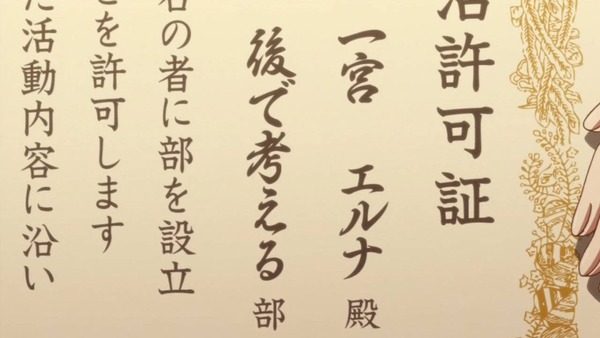 活許可証
一宮 エルナ 殿
後で考える 部
名の者に部を設立
とを許可します
た活動内容に沿い